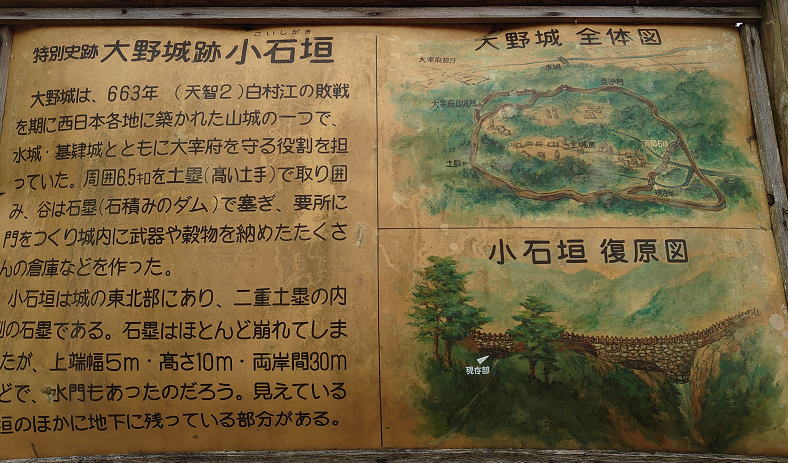 こいしがき
特別史跡 大野城跡 小石垣
大野城は、663年（天智2）白村江の敗戦
を期に西日本各地に築かれた山城の一つで、
水城・基肄城とともに大宰府を守る役割を担
っていた。周囲6.5キロを土塁(高い土手)で取り囲
み、谷は石塁(石積みのダム)で塞ぎ、要所に
門をつくり城内に武器や穀物を納めたたくさ
んの倉庫などを作った。
小石垣は城の東北部にあり、二重土塁の内
の石塁である。石塁はほとんど崩れてしま
たが、上端幅5m・高さ10m・両岸間30m
どで、水門もあったのだろう。見えている
垣のほかに地下に残っている部分がある。
大野城 全体図
大宰府政庁
水城
土塁
主城原
百間石垣
小石垣 復原図
現存部